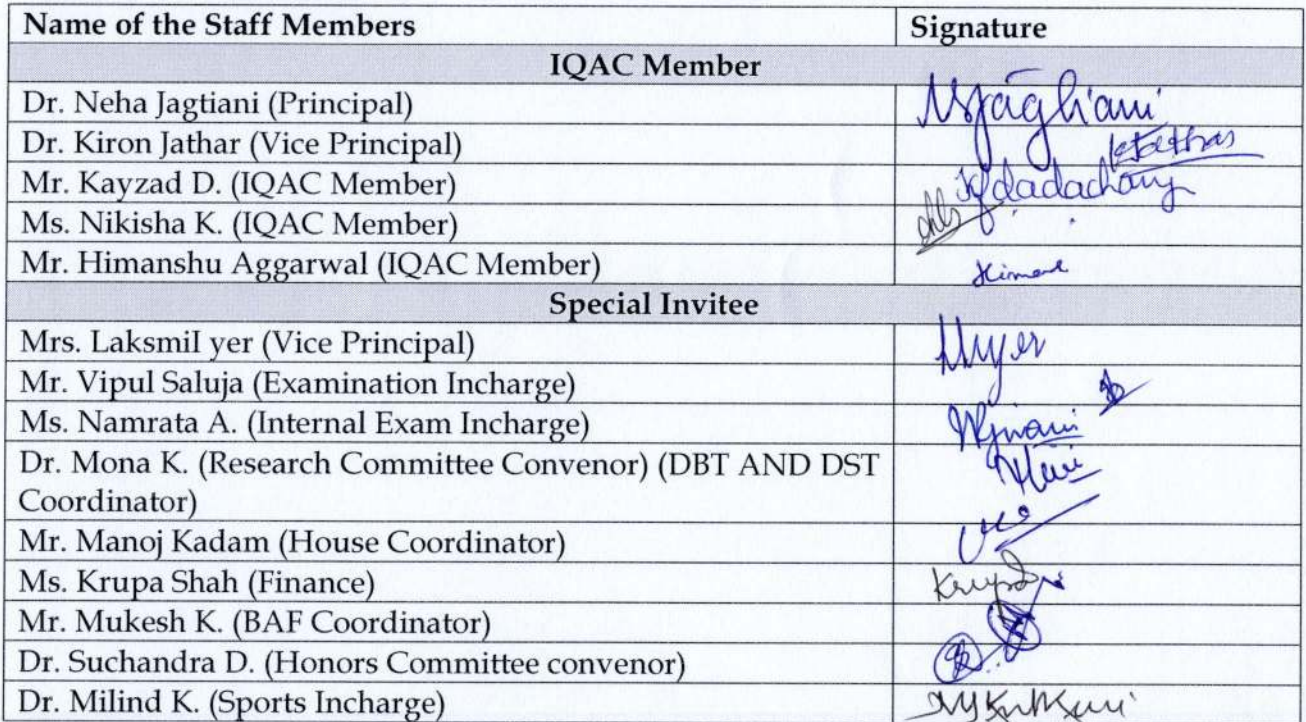 Name of the Staff Members Signature
IQAC Member
Dr. Neha Jagtiani (Principal) NJagtiani
Dr. Kiron Jathar (Vice Principal)
Mr. Kayzad D. (IQAC Member) Kfdadachanj
Ms. Nikisha K. (IQAC Member)
Mr. Himanshu Aggarwal (IQAC Member)
Special Invitee
Mrs. LaksmiI yer (Vice Principal)
Mr. Vipul Saluja (Examination Incharge)
Ms. Namrata A. (Internal Exam Incharge)
Dr. Mona K. (Research Committee Convenor) (DBT AND DST
Coordinator)
Mr. Manoj Kadam (House Coordinator)
Ms. Krupa Shah (Finance) Krupa
Mr. Mukesh K. (BAF Coordinator)
Dr. Suchandra D. (Honors Committee convenor)
Dr. Milind K. (Sports Incharge)